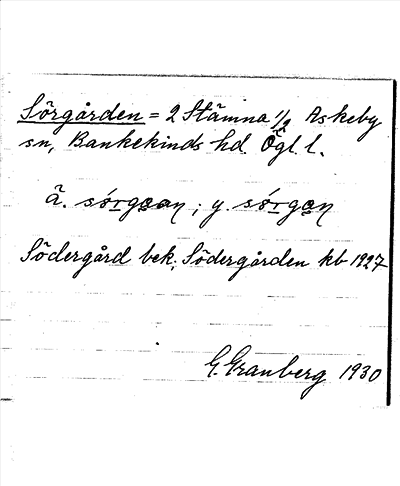 Sörgården = 2 Stämna 1/2 Askeby
sn, Bankekinds hd. Ögl. l.
ä. sörgạan; y. sörgạn
Södergård bek, Södergården kb 1927
G. Granberg 1930